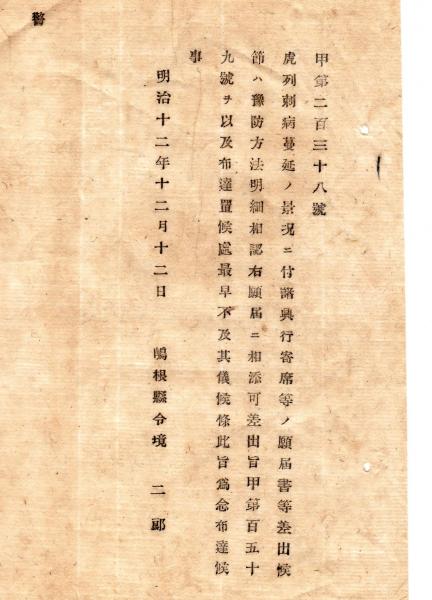 甲第二百三十八號
虎列刺病蔓延ノ景况ニ付諸興行寄席等ノ願屆書等差出候
節ハ豫防方法明細相認右願屆ニ相添可差出旨甲第百五十
九號ヲ以及布達置候處最早不及其儀候條此旨爲念布達候
事
明治十二年十二月十二日　嶋根縣令境　二郎
警